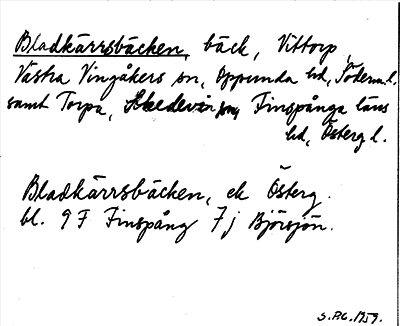 Bladkärrsbäcken, bäck, Vittorp,
Västra Vingåkers sn, Oppunda hd, Söderm.l.
samt Torpa, Skedevi sn, Finspånga läns
hd, Österg l.
Bladkärrsbäcken, ek Österg.
bl. 9 F Finspång 7 j Björsjön.
S.P.G. 1959.